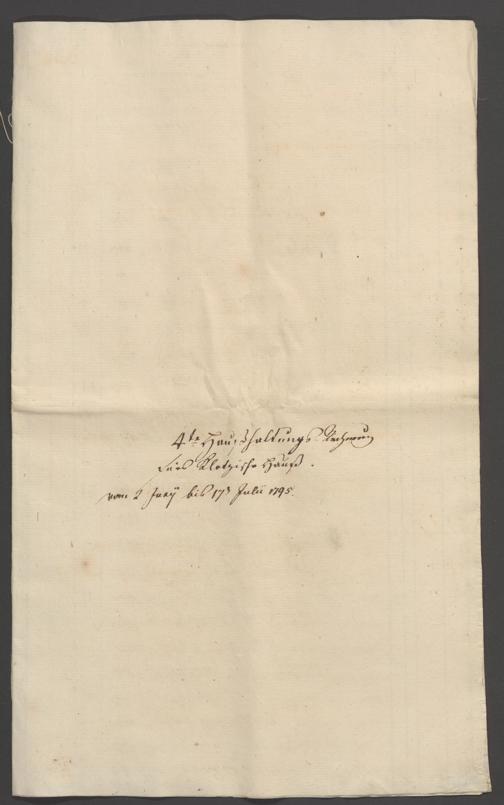 4te Haußhaltungs Rechnung
fürs Klotzische Hauß.
vom 2 Juny bis 17 Julii 1795